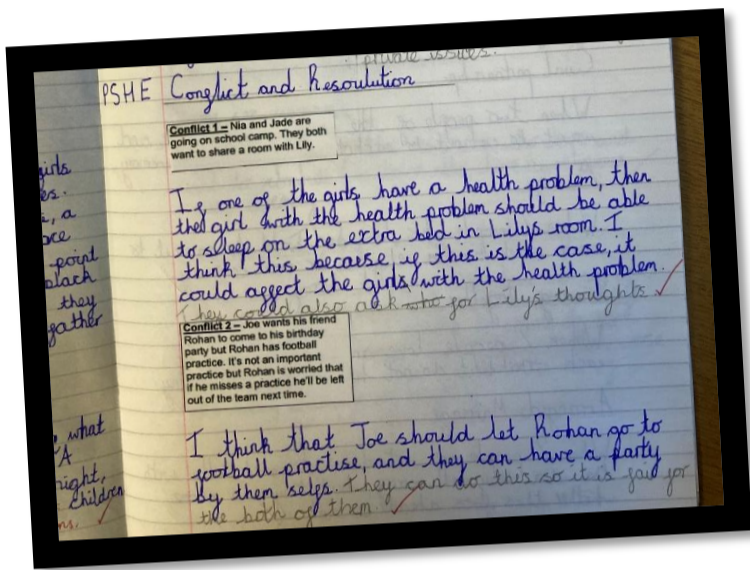 private issues.
PSHE Conflict and Resoulution
Conflict 1 – Nia and Jade are
going on school camp. They both
want to share a room with Lily.
If one of the girls have a health problem, then
the girl with the health problem should be able
to sleep on the extra bed in Lilys room. I
think this because if this is the case, it
could affect the girls with the health problem.
They could also ask who for Lily's thoughts
Conflict 2 – Joe wants his friend
Rohan to come to his birthday
party but Rohan has football
practice. It's not an important
practice but Rohan is worried that
if he misses a practice he'll be left
out of the team next time.
I think that Joe should let Rohan go to
football practise, and they can have a party
by them selfs. They can do this so it is fair for
the both of them.
girls
es.
, a
point
black
they
gather
what
A
night,
children
ns.